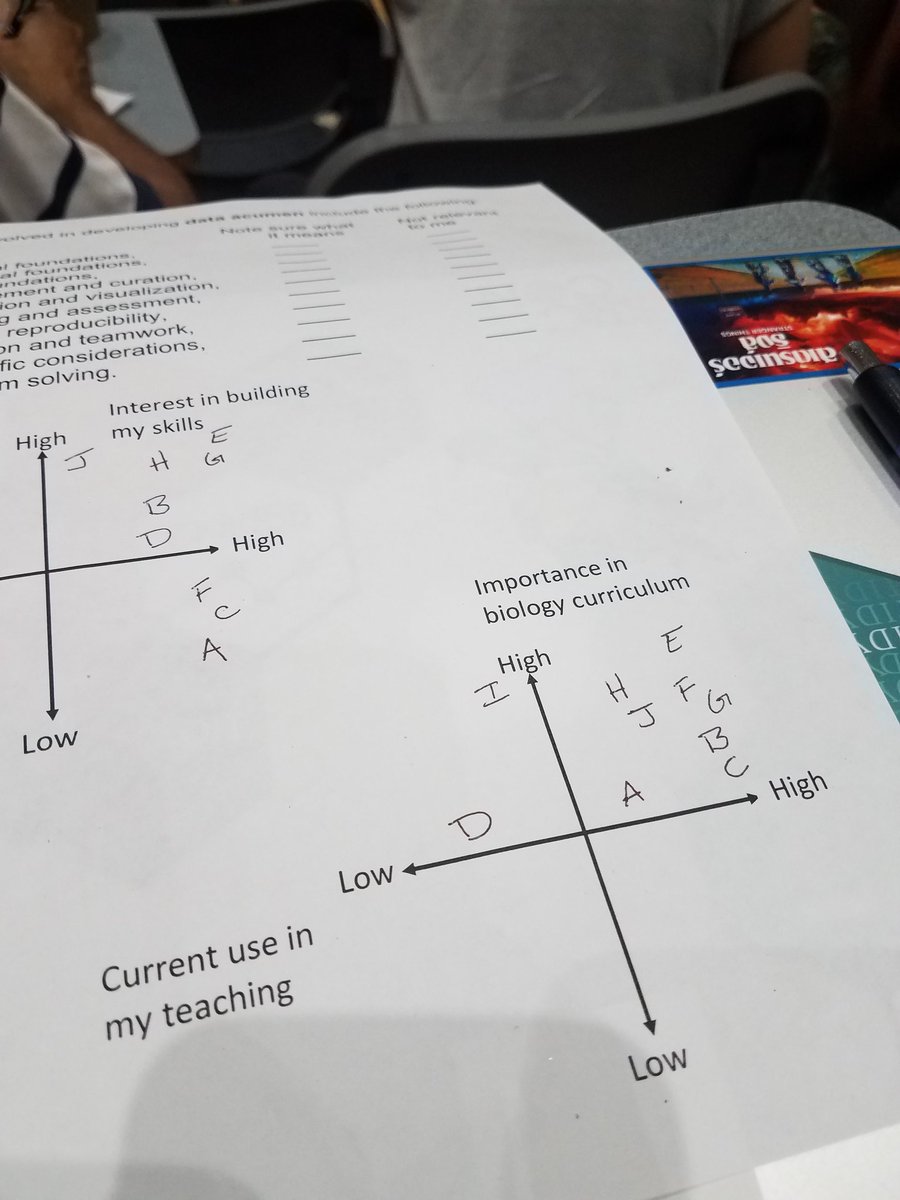 olved in developing data acumen include the following:
Note sure what
it means
Not relevant
to me
l foundations,
al foundations,
undations,
ement and curation,
ion and visualization,
g and assessment,
reproducibility,
on and teamwork,
fic considerations,
m solving.
Interest in building
my skills
High
J
H
E
G
B
D
High
F
C
A
Low
Importance in
biology curriculum
High
I
E
H
F
J
G
B
C
A
High
D
Low
Low
Current use in
my teaching
STRANGER THINGS